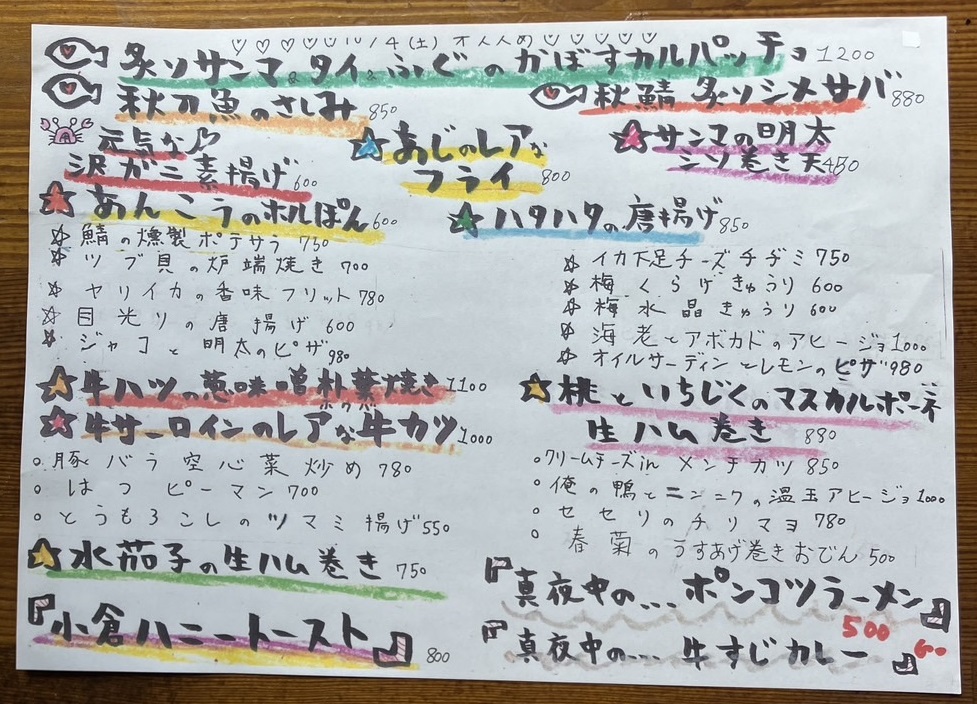 ♡♡♡♡♡10/4(土)オススメ♡♡♡♡♡
炙りサンマ&タイ&ふぐのかぼすカルパッチョ 1200
秋刀魚のさしみ 850
秋鯖 炙りシメサバ 880
元気な♪
沢ガニ素揚げ 600
☆あじのレアな
フライ 800
☆サンマの明太
シソ巻き天 450
☆あんこうのホルぽん 600
☆ハタハタの唐揚げ 850
☆鯖の燻製ポテサラ 750
☆ツブ貝の炉端焼き 700
☆ヤリイカの香味フリット 780
☆目光りの唐揚げ 600
☆ジャコと明太のピザ 980
☆イカ下足チーズチヂミ 750
☆梅くらげきゅうり 600
☆梅水晶きゅうり 600
☆海老とアボカドのアヒージョ 1000
☆オイルサーディンとレモンのピザ 980
☆牛ハツの葱味噌朴葉焼き 1100
ホウバ
☆牛サーロインのレアな牛カツ 1000
☆桃といちじくのマスカルポーネ
生ハム巻き 880
○豚バラ空心菜炒め 780
○はつピーマン 700
○とうもろこしのツマミ揚げ 550
○クリームチーズin メンチカツ 850
○俺の鴨とニンニクの温玉アヒージョ 1000
○セセリのチリマヨ 780
○春菊のうすあげ巻きおでん 500
☆水茄子の生ハム巻き 750
『小倉ハニートースト』 800
『真夜中の...ポンコツラーメン』
500
『真夜中の...牛すじカレー』 600